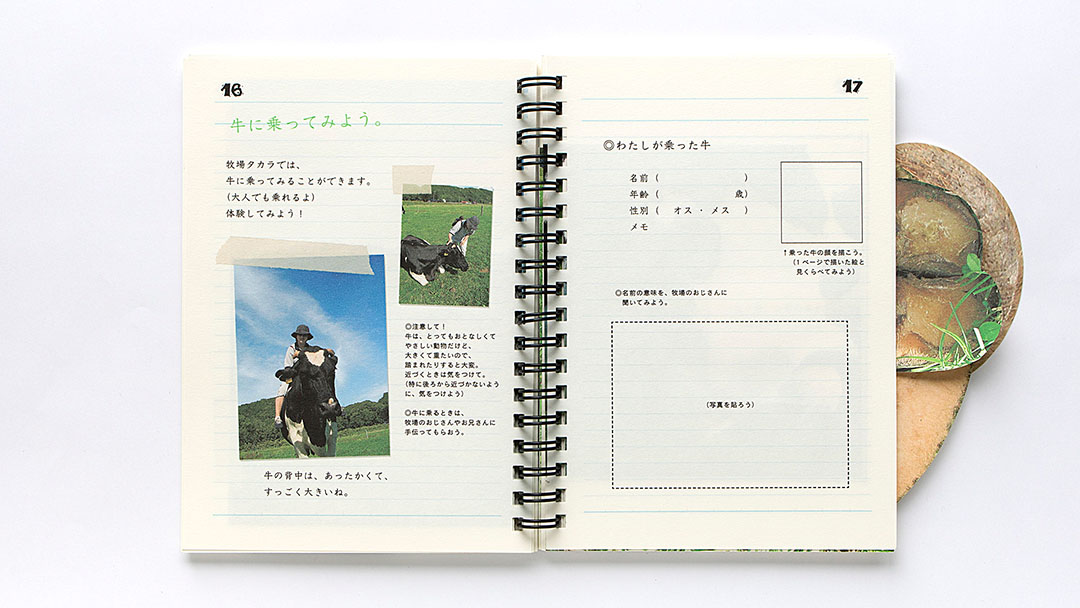 16
牛に乗ってみよう。
牧場タカラでは、
牛に乗ってみることができます。
(大人でも乗れるよ)
体験してみよう！
◎注意して！
牛は、とってもおとなしくて
やさしい動物だけど、
大きくて重たいので、
踏まれたりすると大変。
近づくときは気をつけて。
(特に後ろから近づかないよう
に、気をつけよう)
◎牛に乗るときは、
牧場のおじさんやお兄さんに
手伝ってもらおう。
牛の背中は、あったかくて、
すっごく大きいね。
17
◎わたしが乗った牛
名前 ( )
年齢 ( 歳)
性別 ( オス・メス )
メモ
↑乗った牛の顔を描こう。
(1ページで描いた絵と
見くらべてみよう)
◎名前の意味を、牧場のおじさんに
聞いてみよう。
(写真を貼ろう)